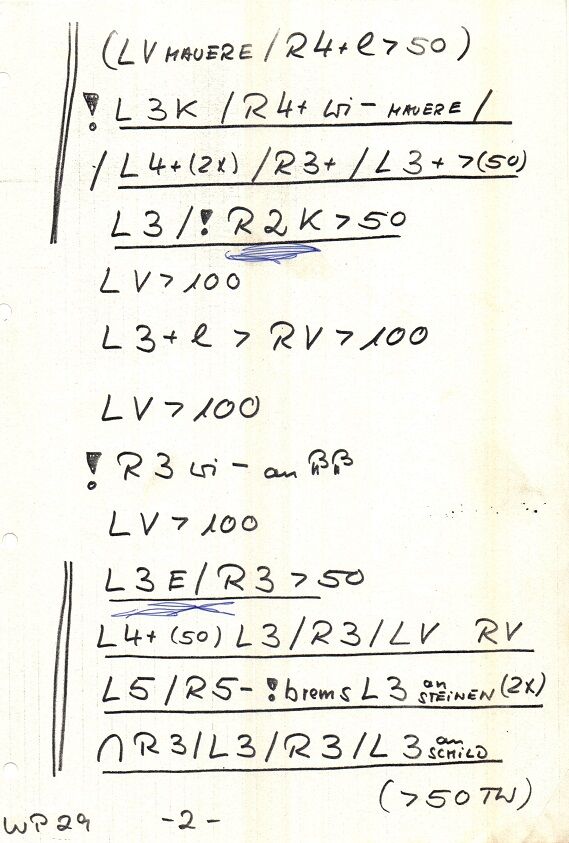 (LV MAUERE / R4+ l > 50)
! L3K / R4+ wi - MAUERE /
/ L4+ (2x) / R3+ / L3+ > (50)
L3 / ! R2K > 50
LV > 100
L3+ l > RV > 100
LV > 100
! R3 wi - an
LV > 100
L3E / R3 > 50
L4+ (50) L3 / R3 / LV RV
L5 / R5 - ! brems L3 an STEINEN (2x)
∩ R3 / L3 / R3 / L3 an SCHILD
(> 50 TW)
WP29 -2-